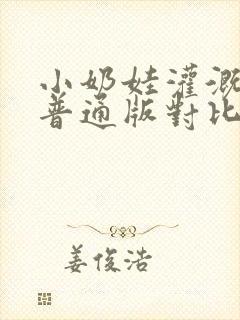 小奶娃灌溉
普通版對比
姜俊浩